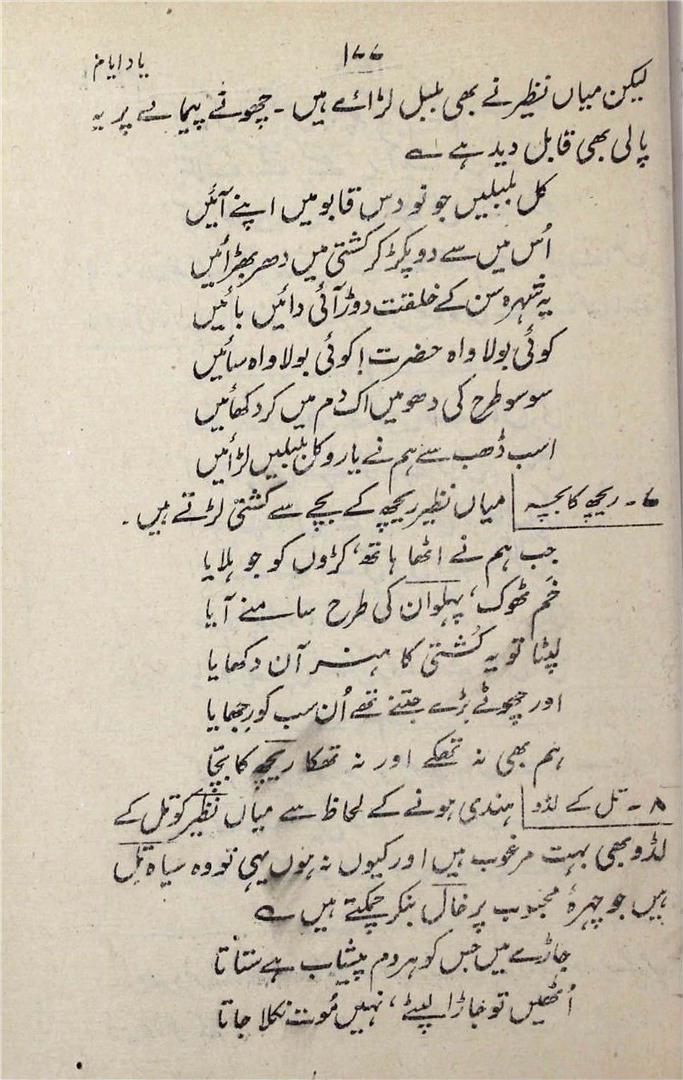 ۱۷۷
یاد ایام
لیکن میاں نظیر نے بھی بلبل لڑائے ہیں ۔ چھوٹے پیمانے پر یہ
پالی بھی قابل دید ہے ؎
کل بلبلیں جو نو دس قابو میں اپنے آئیں
اُس میں سے دو پکڑ کر کشتی میں دھر بھڑائیں
یہ شہرہ سن کے خلقت دوڑ آئی دائیں بائیں
کوئی بولا واہ حضرت! کوئی بولا واہ سائیں
سو سو طرح کی دھومیں اک دم میں کر دکھائیں
اسب ڈھب سے ہم نے یارو کل بلبلیں لڑائیں
۷۔ ریچھ کا بچہ میاں نظیر ریچھ کے بچے سے کشتی لڑتے ہیں ۔
جب ہم نے اٹھا ہاتھ، کڑوں کو جو ہلایا
خم ٹھوک، پہلوان کی طرح سامنے آیا
لپٹا تو یہ کُشتی کا ہنر آن دکھایا
اور چھوٹے بڑے جتنے تھے اُن سب کو رجھایا
ہم بھی نہ تھکے اور نہ تھکا ریچھ کا بچّا
۸۔ تل کے لڈو ہندی ہونے کے لحاظ سے میاں نظیر کو تل کے
لڈو بھی بہت مرغوب ہیں اور کیوں نہ ہوں یہی تو وہ سیاہ تل
ہیں جو چہرۂ محبوب پر خال بنکر چمکتے ہیں ؎
جاڑے میں جس کو ہر دم پیشاب ہے ستاتا
اُٹھیں تو جاڑا لپٹے، نہیں مُوت نکلا جاتا